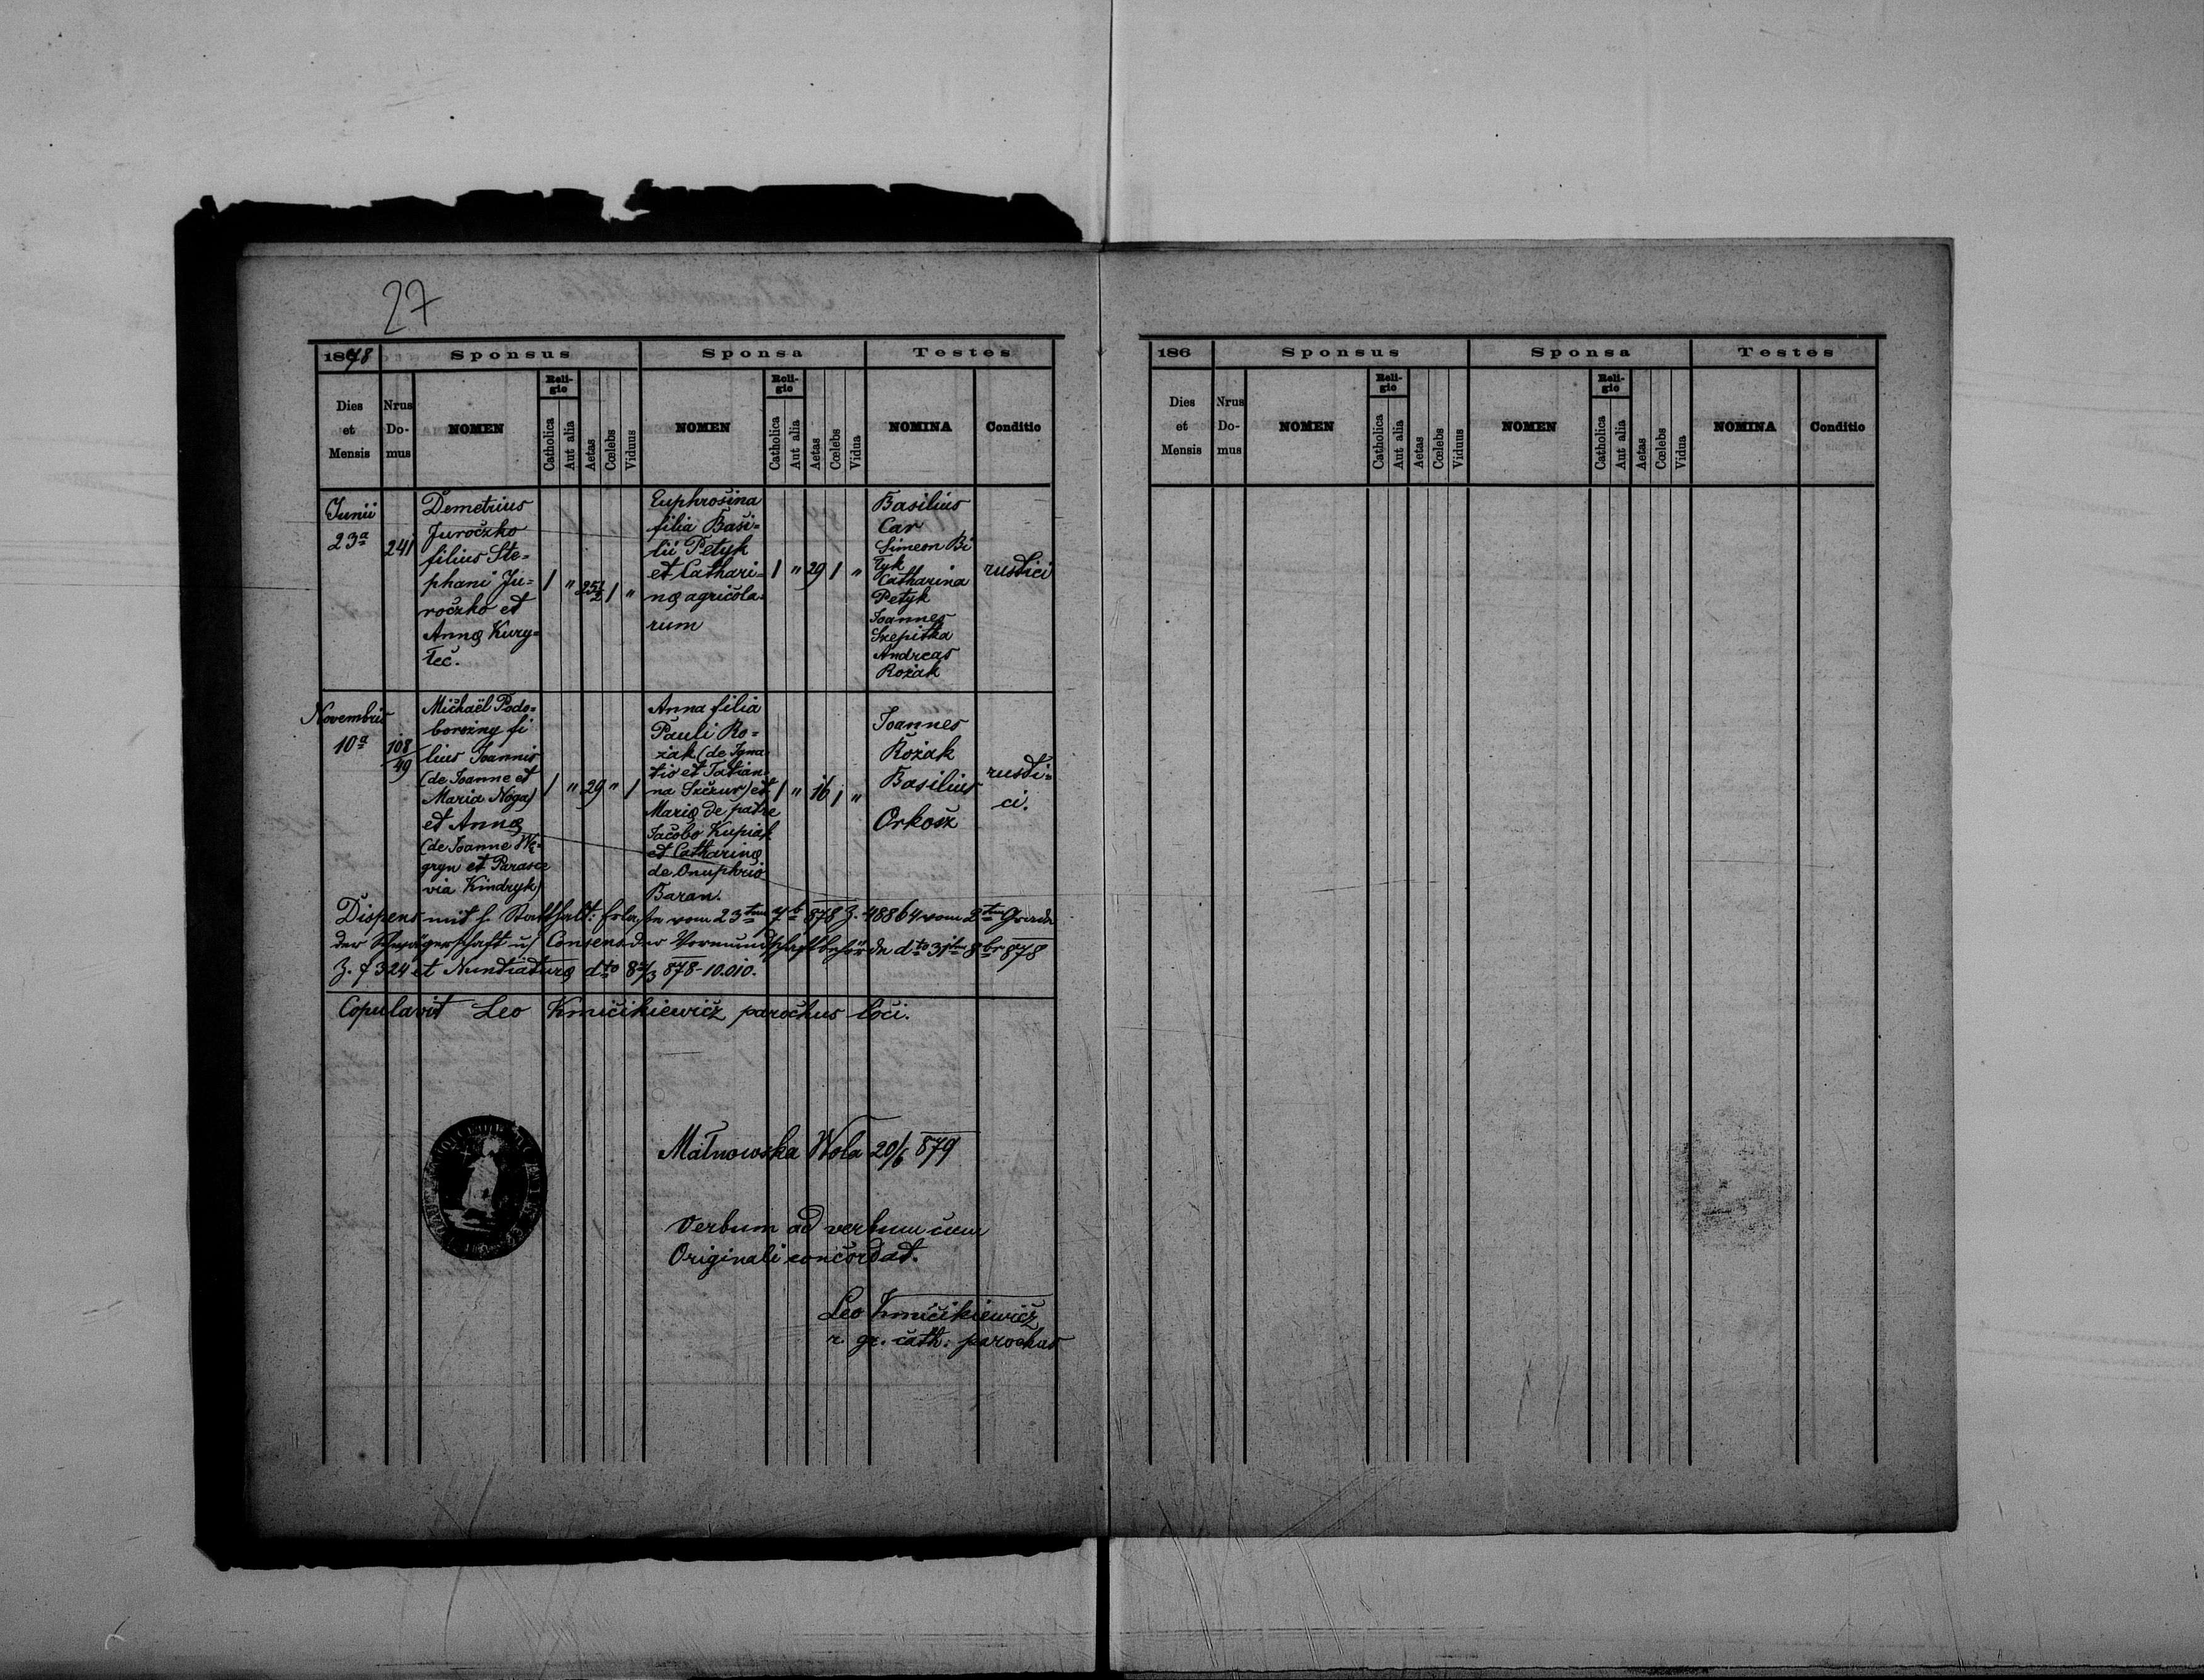 27
1878 Sponsus Sponsa Testes
Dies et Mensis Nrus Do- mus NOMEN Reli- gio Catholica Aut alia Aetas Cœlebs Viduus NOMEN Reli- gio Catholica Aut alia Aetas Cœlebs Vidua NOMINA Conditio
Junii
23ª
241
Demetrius
Juroczko
filius Ste=
phani Ju=
roczko et
Annę Kury=
łec.
1 " 25½ 1 "
Euphrosina
filia Basi=
lii Petyk
et Cathari=
nę agricola=
rum
1 " 29 1 "
Basilius
Car
Simeon Bi
łyk
Catharina
Petyk
Joannes
Szepitka
Andreas
Rożak
rustici
Novembris
10ª
108
49
Michaël Podo=
borozny fi
lius Joannis
(de Joanne et
Maria Noga)
et Annę
(de Joanne Wę=
gryn et Parasce
via Kindryk)
1 " 29 " 1
Anna filia
Pauli Ro=
żak (de Igna=
tio et Tatian=
na Szczur) et
Marię de patre
Jacobo Kupiak
et Catharinę
de Onuphrio
Baran.
1 " 16 1 "
Joannes
Rożak
Basilius
Orkosz
rusti=
ci.
Dispens mit h. Statthalt: Erlaße vom 23ten 7b 878 Z. 48864 vom 2ten Grade
der Schwägerschaft u/ Consens der Vormundschaftbehörde dto 31ten 8br 878
Z. 7324 et Nuntiaturę dto 8/3 878-10.010.
Copulavit Leo Kmicikiewicz parochus loci.
Małnowska Wola 20/6 879
Verbum ad verbum cum
Originali concordat.
Leo Kmicikiewicz
r. gr. cath. parochus
186 Sponsus Sponsa Testes
Dies et Mensis Nrus Do- mus NOMEN Reli- gio Catholica Aut alia Aetas Cœlebs Viduus NOMEN Reli- gio Catholica Aut alia Aetas Cœlebs Vidua NOMINA Conditio